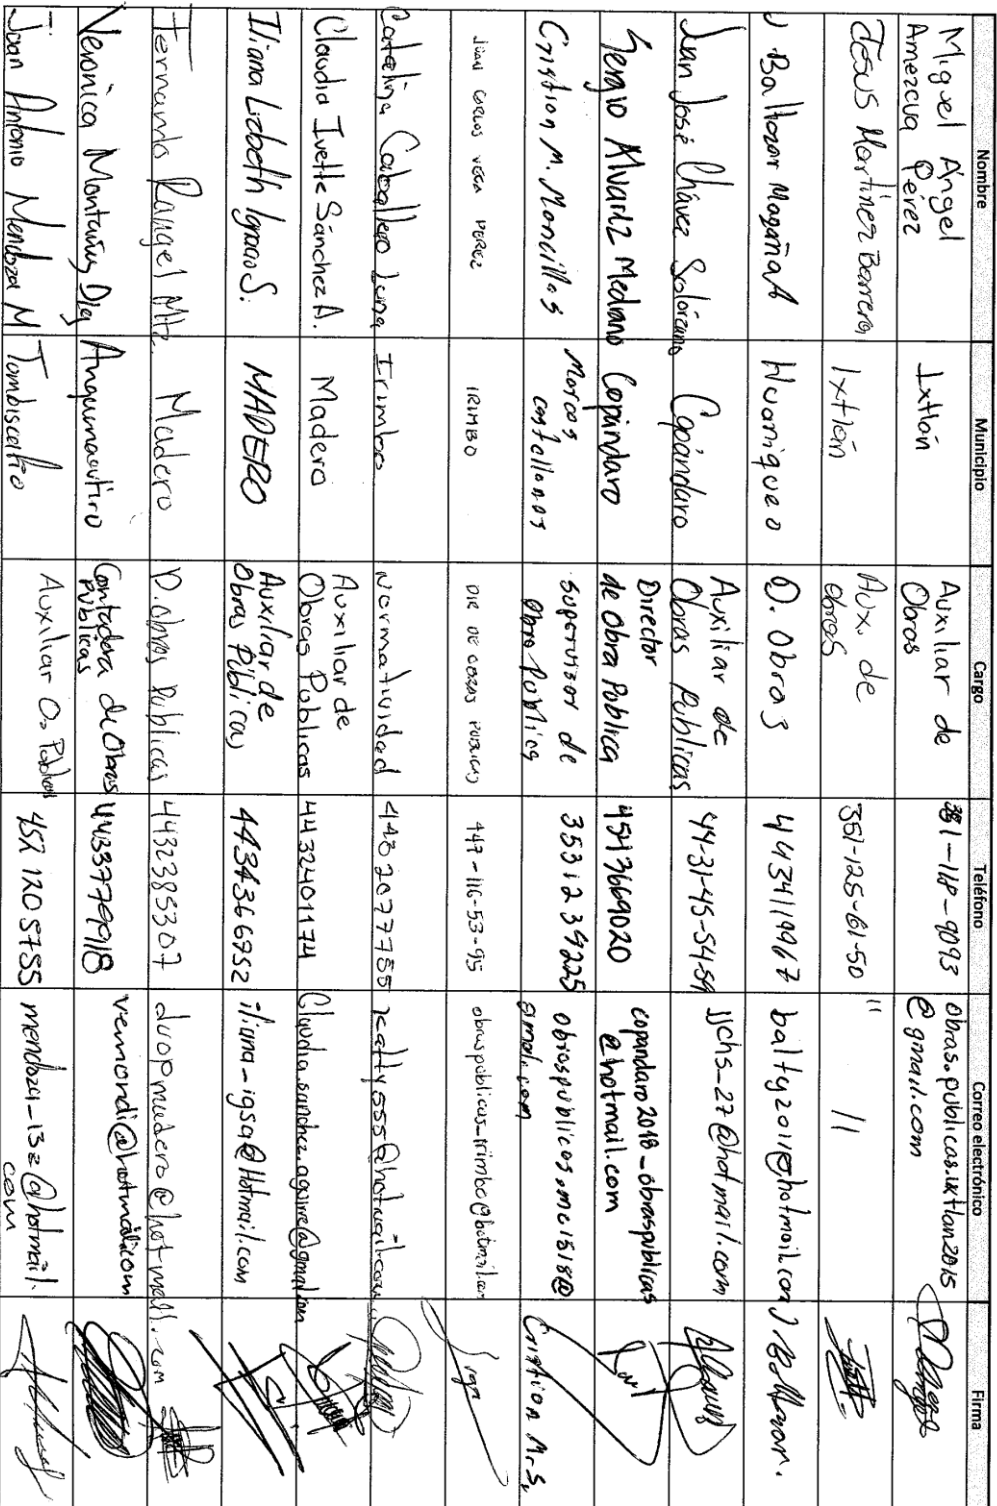 Nombre Municipio Cargo Teléfono Correo electrónico Firma
Miguel Ángel
Amezcua Pérez
Ixtlán
Auxiliar de
Obras
obras.publicas.ixtlan2015
@gmail.com
Jesus Martínez Barrera
Ixtlán
Aux. de
obras
351-125-61-50
"        //
J Baltazar Magaña A
Huaniqueo
D. Obras
4434119967
balty2011@hotmail.com
J Baltazar.
Juan José Chávez Solórzano
Copándaro
Auxiliar de
Obras Públicas
44-31-45-54-59
jjchs_27@hotmail.com
Sergio Alvarez Medrano
Copándaro
Director
de Obra Publica
4543669020
copandaro2018_obraspublicas
@hotmail.com
Cristian M. Moncillos
Marcos
castellanos
Supervisor de
Obra Publica
3531239225
obraspublicas.mc1518@
gmail.com
Cristian M.S.
JUAN CARLOS VEGA PEREZ
IRIMBO
DIR DE OBRAS PUBLICAS
447-116-53-95
obraspublicas-irimbo@hotmail.com
Catalina Caballero Luna
Irimbo
Normatividad
katty555@hotmail.com
Claudia Ivette Sánchez A.
Madero
Auxiliar de
Obras Publicas
4432401174
Claudia.sanchez.aguirre@gmail.com
Iliana Lizbeth Ignacio S.
MADERO
Auxiliar de
Obras Públicas
4434366952
iliana-igsa@Hotmail.com
Fernando Rangel Mtz.
Madero
D. obras Publicas
4432385307
duopmadero@hotmail.com
Veronica Montañez Díaz
Angamacutiro
Contadora de Obras
Publicas
4433779918
vermondi@hotmail.com
Juan Antonio Mendoza M
Tangancícuaro
Auxiliar O. Publicas
4521205755
mendoza-132@hotmail.
com